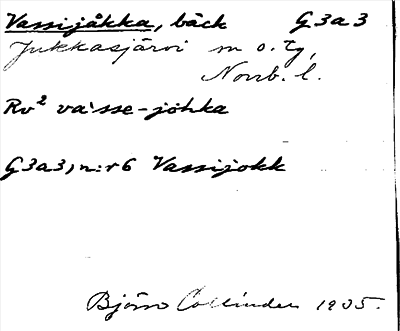 Vassijåkka, bäck G3a3
Jukkasjärvi m o. tg,
Norrb. l.
Rv² va̒sse-johka
G3a3, n:r 6 Vassijokk
Björn Collinder 1935.